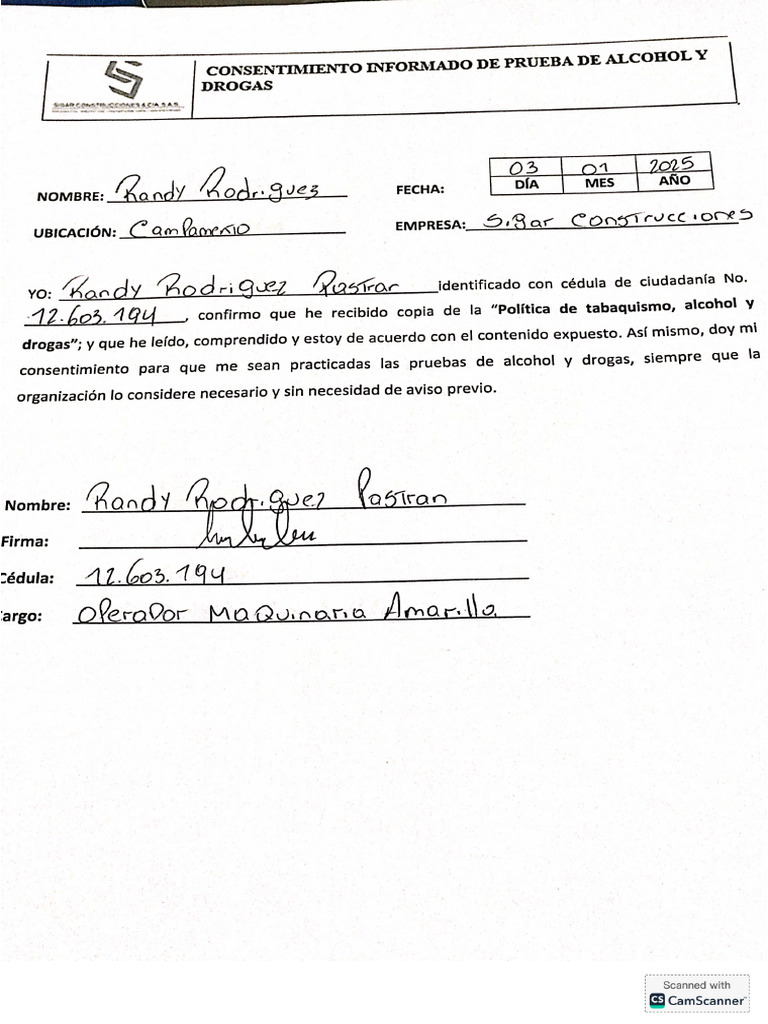 SIGAR CONSTRUCCIONES & CIA S.A.S.
CONSENTIMIENTO INFORMADO DE PRUEBA DE ALCOHOL Y
DROGAS
NOMBRE: Randy Rodriguez
FECHA: 03 01 2025
DÍA MES AÑO
UBICACIÓN: Campamento
EMPRESA: Sigar Construcciones
YO: Randy Rodriguez Pastran identificado con cédula de ciudadanía No.
12.603.194, confirmo que he recibido copia de la “Política de tabaquismo, alcohol y
drogas”; y que he leído, comprendido y estoy de acuerdo con el contenido expuesto. Así mismo, doy mi
consentimiento para que me sean practicadas las pruebas de alcohol y drogas, siempre que la
organización lo considere necesario y sin necesidad de aviso previo.
Nombre: Randy Rodriguez Pastran
Firma:
Cédula: 12.603.194
argo: Operador Maquinaria Amarilla
Scanned with
CS CamScanner